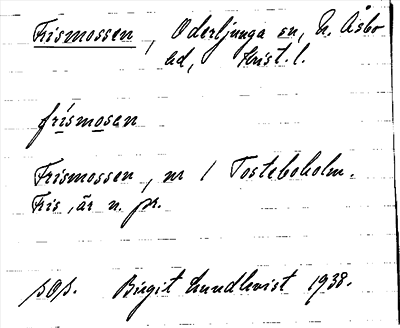 Frismossen, Oderljunga sn, N. Åsbo
hd, Krist. l.
frísmosan
Frismossen, nr 1 Tosteboholm.
Fris, är n. pr.
sOs. Birgit Lundkvist 1938.